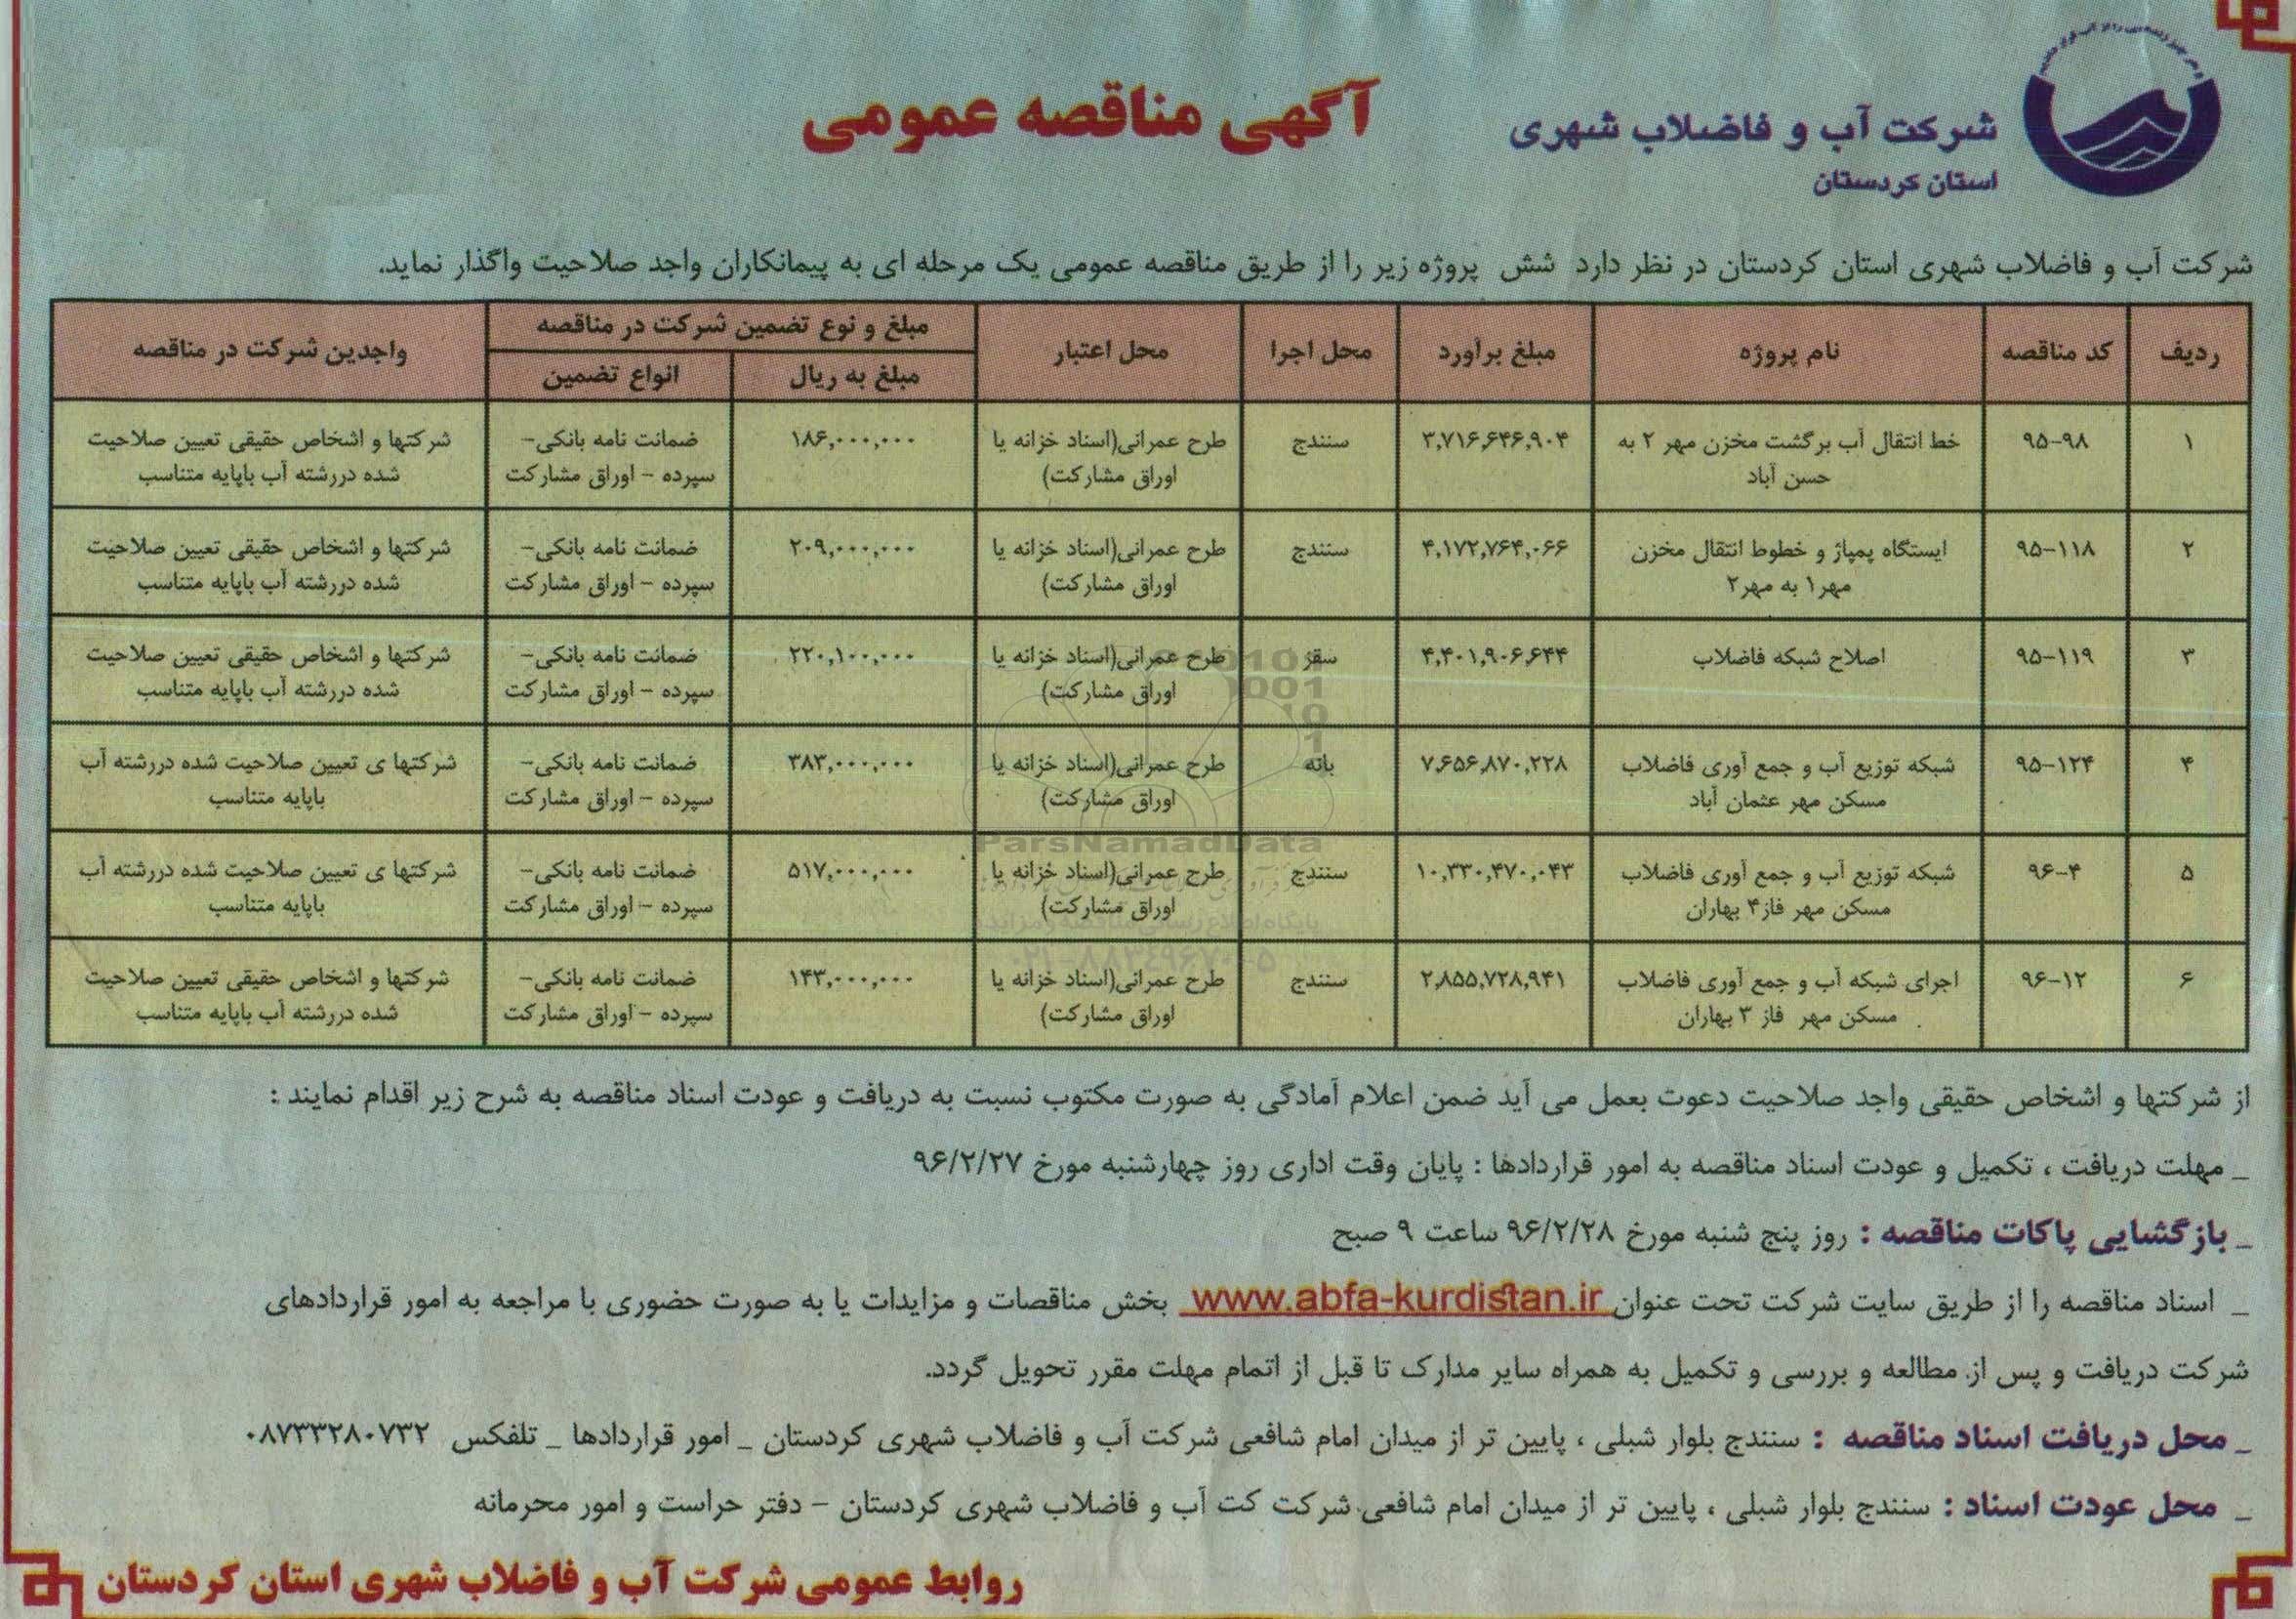 آگهی مناقصه عمومی
شرکت آب و فاضلاب شهری
استان کردستان
شرکت آب و فاضلاب شهری استان کردستان در نظر دارد شش پروژه زیر را از طریق مناقصه عمومی یک مرحله ای به پیمانکاران واجد صلاحیت واگذار نماید.
ردیف کد مناقصه نام پروژه مبلغ برآورد محل اجرا محل اعتبار مبلغ و نوع تضمین شرکت در مناقصه واجدین شرکت در مناقصه
مبلغ به ریال انواع تضمین
۱ ۹۵-۹۸ خط انتقال آب برگشت مخزن مهر ۲ به ۳,۷۱۶,۶۴۶,۹۰۴ سنندج طرح عمرانی(اسناد خزانه یا ۱۸۶,۰۰۰,۰۰۰ ضمانت نامه بانکی- شرکتها و اشخاص حقیقی تعیین صلاحیت
حسن آباد اوراق مشارکت) سپرده - اوراق مشارکت شده دررشته آب باپایه متناسب
۲ ۹۵-۱۱۸ ایستگاه پمپاژ و خطوط انتقال مخزن ۴,۱۷۲,۷۶۴,۰۶۶ سنندج طرح عمرانی(اسناد خزانه یا ۲۰۹,۰۰۰,۰۰۰ ضمانت نامه بانکی- شرکتها و اشخاص حقیقی تعیین صلاحیت
مهر۱ به مهر۲ اوراق مشارکت) سپرده - اوراق مشارکت شده دررشته آب باپایه متناسب
۳ ۹۵-۱۱۹ اصلاح شبکه فاضلاب ۴,۴۰۱,۹۰۶,۶۴۴ سقز طرح عمرانی(اسناد خزانه یا ۲۲۰,۱۰۰,۰۰۰ ضمانت نامه بانکی- شرکتها و اشخاص حقیقی تعیین صلاحیت
اوراق مشارکت) سپرده - اوراق مشارکت شده دررشته آب باپایه متناسب
۴ ۹۵-۱۲۴ شبکه توزیع آب و جمع آوری فاضلاب ۷,۶۵۶,۸۷۰,۲۲۸ بانه طرح عمرانی(اسناد خزانه یا ۳۸۳,۰۰۰,۰۰۰ ضمانت نامه بانکی- شرکتها ی تعیین صلاحیت شده دررشته آب
مسکن مهر عثمان آباد اوراق مشارکت) سپرده - اوراق مشارکت باپایه متناسب
۵ ۹۶-۴ شبکه توزیع آب و جمع آوری فاضلاب ۱۰,۳۳۰,۴۷۰,۰۴۳ سنندج طرح عمرانی(اسناد خزانه یا ۵۱۷,۰۰۰,۰۰۰ ضمانت نامه بانکی- شرکتها ی تعیین صلاحیت شده دررشته آب
مسکن مهر فاز۴ بهاران اوراق مشارکت) سپرده - اوراق مشارکت باپایه متناسب
۶ ۹۶-۱۲ اجرای شبکه آب و جمع آوری فاضلاب ۲,۸۵۵,۷۲۸,۹۴۱ سنندج طرح عمرانی(اسناد خزانه یا ۱۴۳,۰۰۰,۰۰۰ ضمانت نامه بانکی- شرکتها و اشخاص حقیقی تعیین صلاحیت
مسکن مهر فاز ۳ بهاران اوراق مشارکت) سپرده - اوراق مشارکت شده دررشته آب باپایه متناسب
ParsNamadData
از شرکتها و اشخاص حقیقی واجد صلاحیت دعوت بعمل می آید ضمن اعلام آمادگی به صورت مکتوب نسبت به دریافت و عودت اسناد مناقصه به شرح زیر اقدام نمایند :
_ مهلت دریافت ، تکمیل و عودت اسناد مناقصه به امور قراردادها : پایان وقت اداری روز چهارشنبه مورخ ۹۶/۲/۲۷
_ بازگشایی پاکات مناقصه : روز پنج شنبه مورخ ۹۶/۲/۲۸ ساعت ۹ صبح
_ اسناد مناقصه را از طریق سایت شرکت تحت عنوان www.abfa-kurdistan.ir بخش مناقصات و مزایدات یا به صورت حضوری با مراجعه به امور قراردادهای
شرکت دریافت و پس از مطالعه و بررسی و تکمیل به همراه سایر مدارک تا قبل از اتمام مهلت مقرر تحویل گردد.
_ محل دریافت اسناد مناقصه : سنندج بلوار شبلی ، پایین تر از میدان امام شافعی شرکت آب و فاضلاب شهری کردستان _ امور قراردادها _ تلفکس ۰۸۷۳۳۲۸۰۷۳۲
_ محل عودت اسناد : سنندج بلوار شبلی ، پایین تر از میدان امام شافعی شرکت کت آب و فاضلاب شهری کردستان - دفتر حراست و امور محرمانه
روابط عمومی شرکت آب و فاضلاب شهری استان کردستان